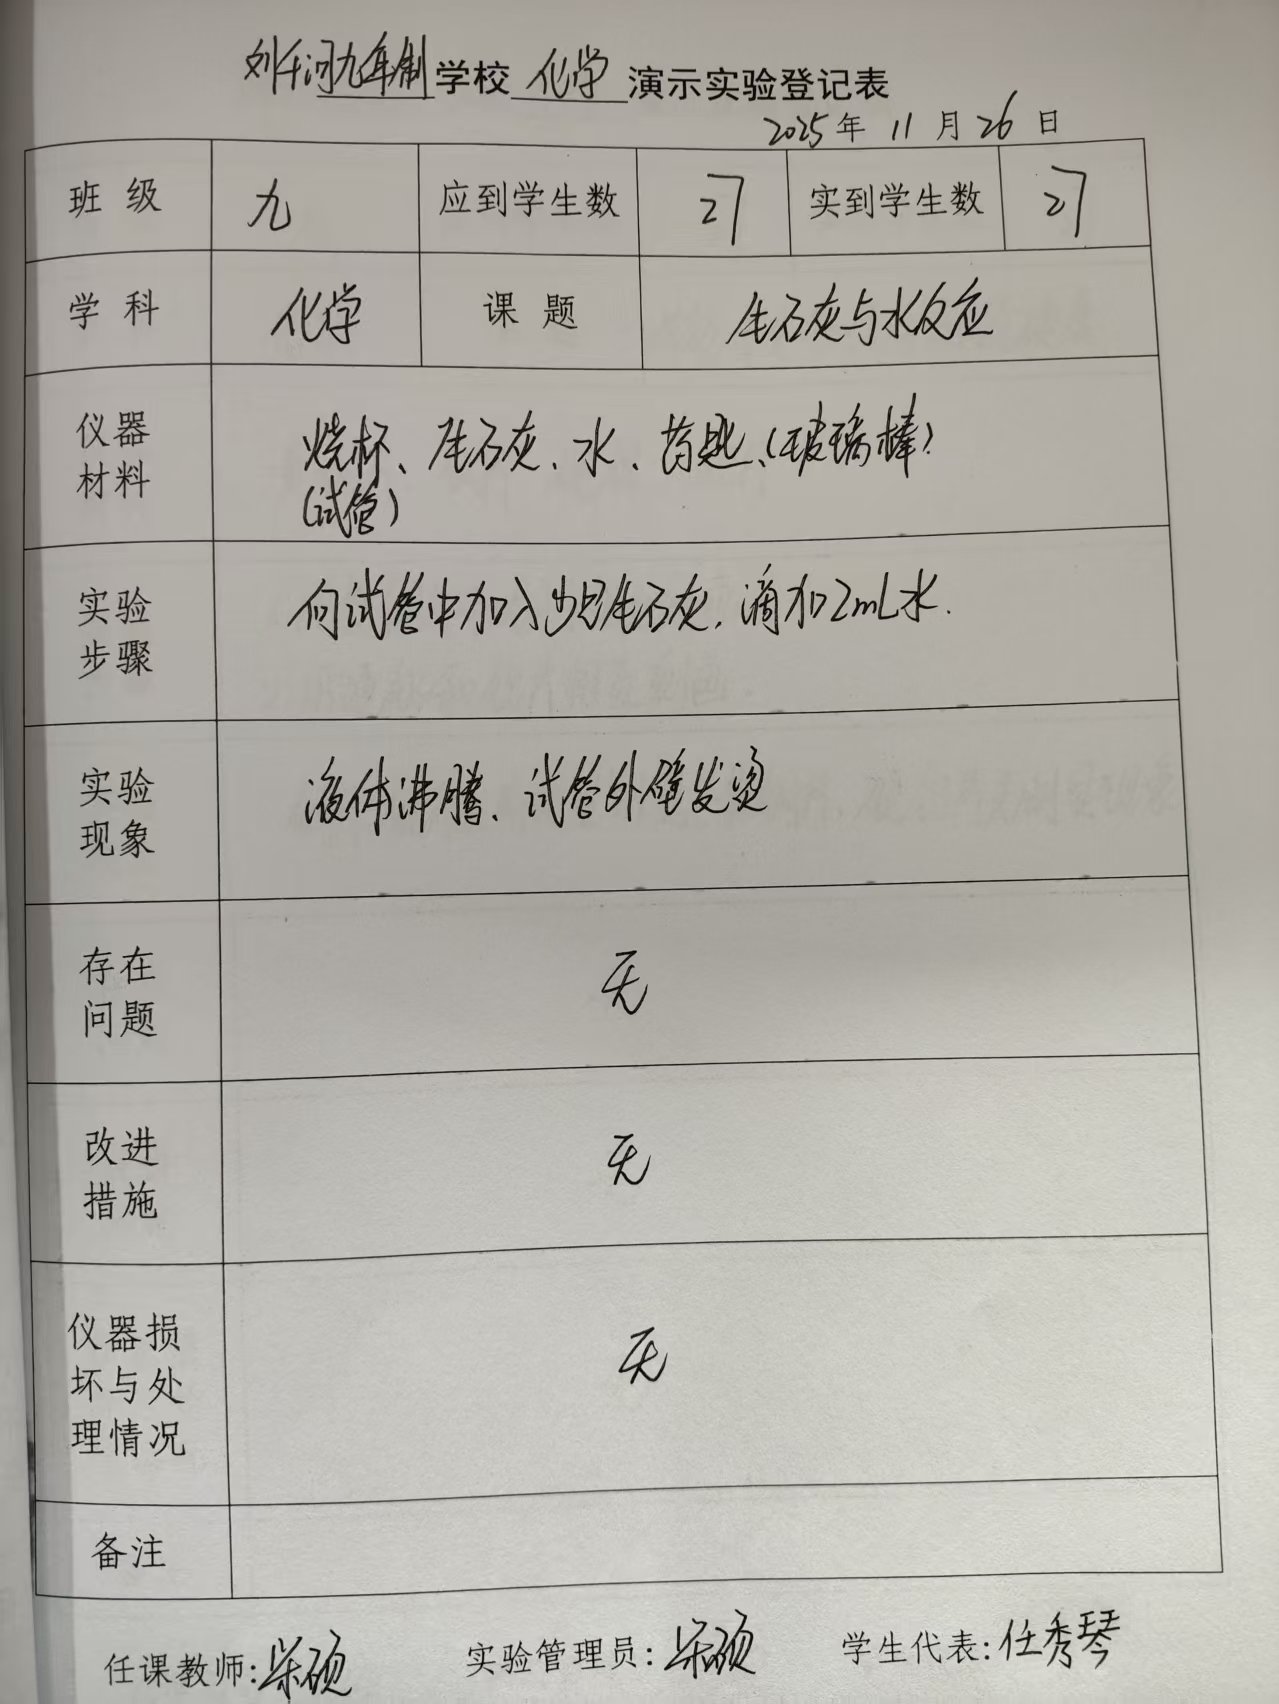 刘千河九年制学校 化学 演示实验登记表
2025年 11月26日
班 级 九 应到学生数 27 实到学生数 27
学 科 化学 课 题 生石灰与水反应
仪器材料 烧杯、生石灰、水、药匙、(玻璃棒)
(试管)
实验步骤 向试管中加入少量生石灰,滴加2mL水.
实验现象 液体沸腾、试管外壁发烫
存在问题 无
改进措施 无
仪器损坏与处理情况 无
备注
任课教师: 实验管理员: 学生代表:任秀琴